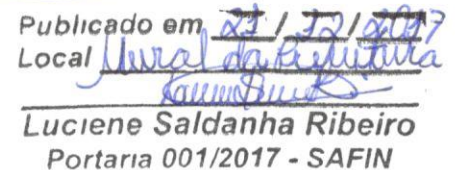 Publicado em 27 / 12 / 2017
Local Mural da Prefeitura
Luciene Saldanha Ribeiro
Portaria 001/2017 - SAFIN